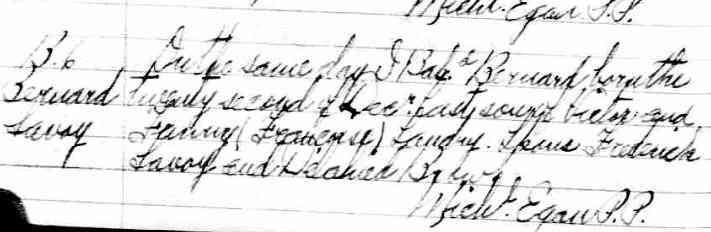 Mich. Egan P.P.
B. 6 On the same day I Bap.d Bernard born the
Bernard twenty second of Decr last, son of Victor and
Savoy Fanny (Francoise) Landry. Spons Frederick
Savoy and
Mich. Egan P.P.